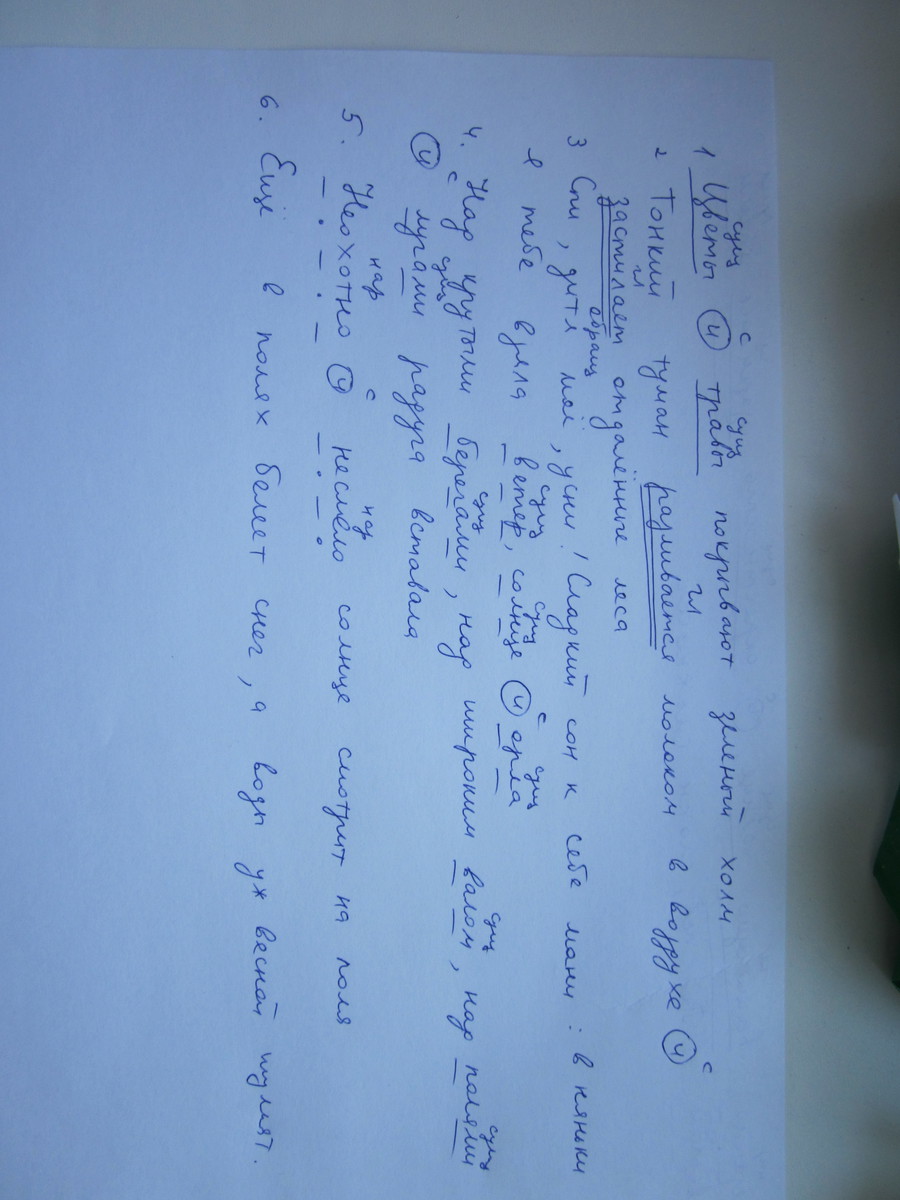 сущ с сущ
1 Цветы и травы покрывают зеленый холм
гл с
2 Тонкий туман разливается молоком в воздухе и
гл
застилает отдалённые леса
обращ
3 Спи, дитя моё, усни! Сладкий сон к себе мани: в няньки
сущ сущ с сущ
я тебе взяла ветер, солнце и орла
сущ сущ сущ
4. Над крутыми берегами, над широким валом, над полями
с сущ
и лугами радуга вставала
нар с нар
5. Неохотно и несмело солнце смотрит на поля
6. Ещё в полях белеет снег, а воды уж весной шумят.